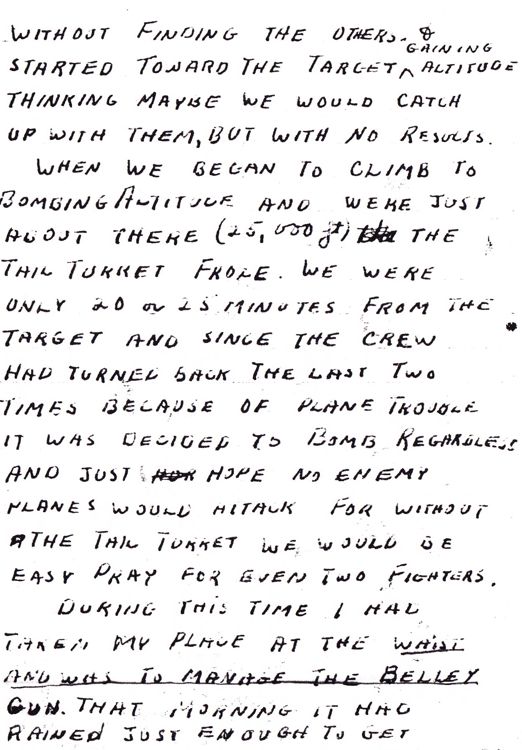 WITHOUT FINDING THE OTHERS. &
STARTED TOWARD THE TARGET ^ GAINING ALTITUDE
THINKING MAYBE WE WOULD CATCH
UP WITH THEM, BUT WITH NO RESULTS.
WHEN WE BEGAN TO CLIMB TO
BOMBING ALTITUDE AND WERE JUST
ABOUT THERE (25,000 ft) the THE
TAIL TURRET FROZE. WE WERE
ONLY 20 or 25 MINUTES FROM THE
TARGET AND SINCE THE CREW
HAD TURNED BACK THE LAST TWO
TIMES BECAUSE OF PLANE TROUBLE
IT WAS DECIDED TO BOMB REGARDLESS
AND JUST HOPE NO ENEMY
PLANES WOULD ATTACK FOR WITHOUT
THE TAIL TURRET WE WOULD BE
EASY PRAY FOR EVEN TWO FIGHTERS.
DURING THIS TIME I HAD
TAKEN MY PLACE AT THE WAIST
AND WAS TO MANAGE THE BELLEY
GUN. THAT MORNING IT HAD
RAINED JUST ENOUGH TO GET